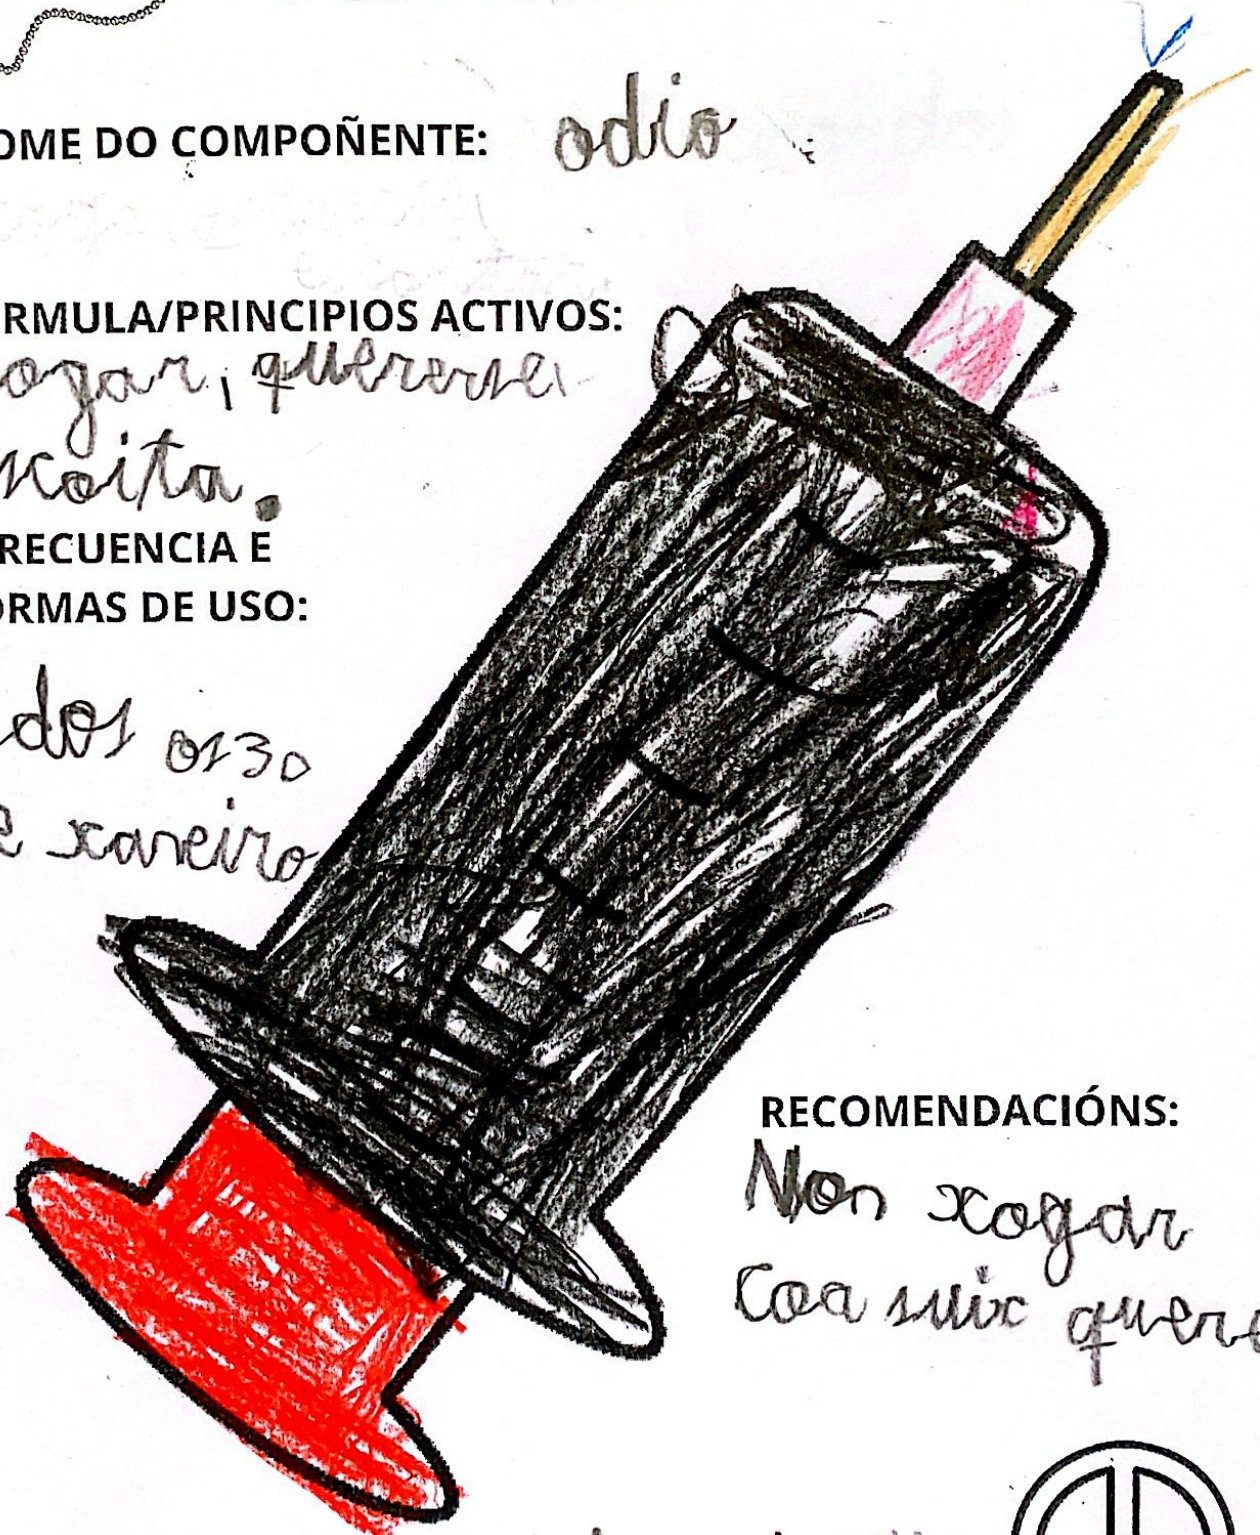 OME DO COMPOÑENTE: odio
RMULA/PRINCIPIOS ACTIVOS:
ogar, quererse,
scoita.
RECUENCIA E
ORMAS DE USO:
dos os 30
e xaneiro
RECOMENDACIÓNS:
Non xogar
Coa quere